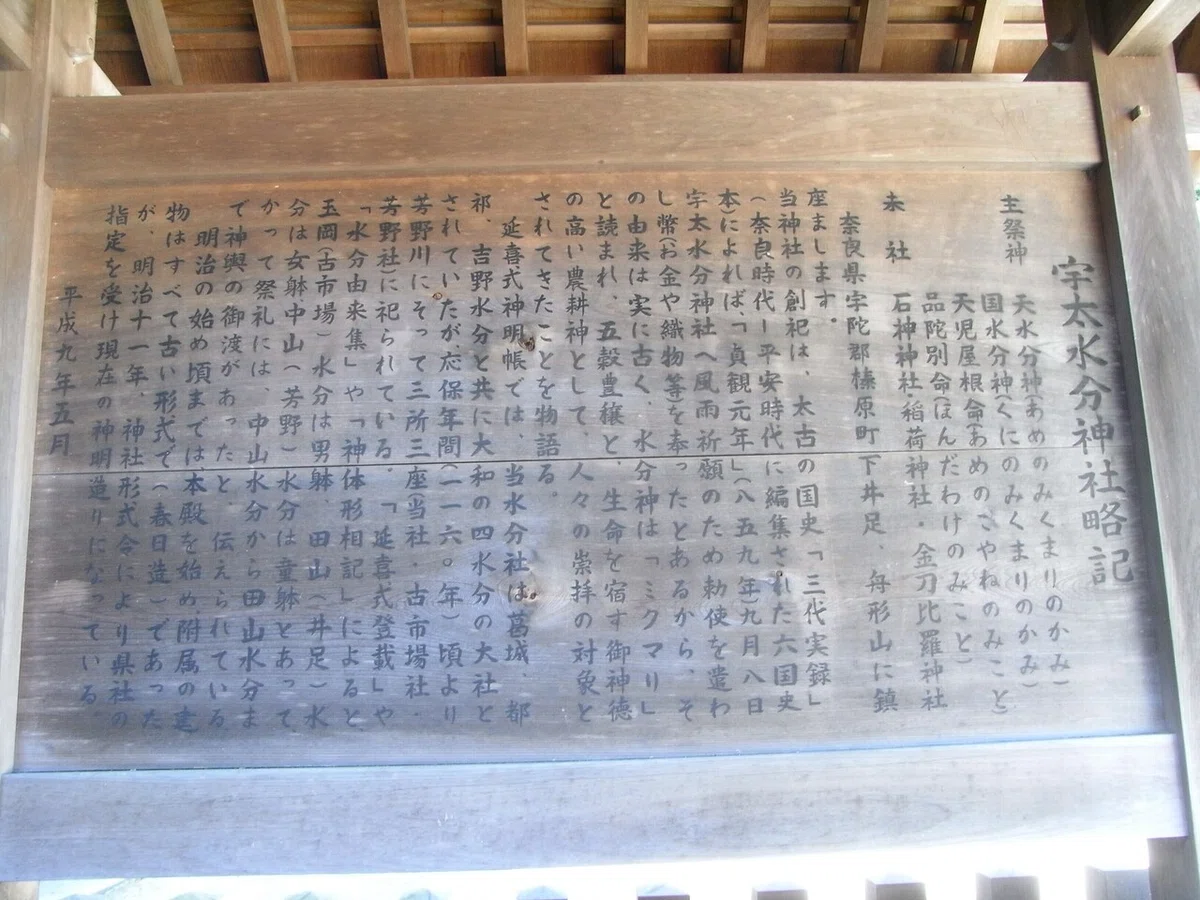 宇太水分神社略記
主祭神 天水分神(あめのみくまりのかみ)
国水分神(くにのみくまりのかみ)
天児屋根命(あめのこやねのみこと)
品陀別命(ほんだわけのみこと)
末社 石神神社・稲荷神社・金刀比羅神社
奈良県宇陀郡榛原町下井足、毎形山に鎮
座まします。
当神社の創祀は、太古の国史「三代実録」
(奈良時代ー平安時代に編集された六国史
本)によれば、「貞観元年」(八五九年)九月八日
宇太水分神社へ風雨祈願のため勅使を遣わ
し幣(お金や織物等を奉ったとあるから、そ
の由来は実に古く、水分神は「ミクマリ」
と読まれ、五穀豊穣と、生命を宿す御神徳
の高い農耕神として、人々の崇拝の対象と
されてきたことを物語る。
延喜式神明帳では、当水分社は葛城、都
祁、吉野水分と共に大和の四水分の大社と
されていたが、応保年間(一一六〇年)頃より
芳野川にそって三所三座(当社・古市場社・
芳野社)に祀られている。「延喜式登載」や
「水分由来集」や「神体形相記」によると
玉岡(古市場)水分は男躰 田山(井足)水
分は女躰中山(芳野)水分は童躰とあって
かって祭礼には、中山水分から田山水分ま
で神輿の御渡があったと 伝えられている
明治の始め頃までは、本殿を始め、附属の建
物はすべて古い形式で(春日造)であった
が、明治十一年、神社形式令により県社の
指定を受け現在の神明造りになっている。
平成九年五月